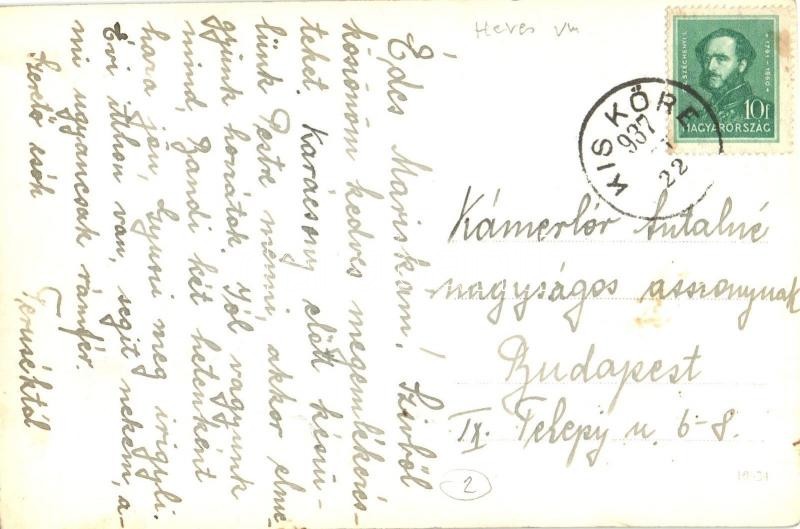 Heves vm
SZÉCHENYI I. 1791-1860
10f
MAGYARORSZÁG
KISKÖRE
937
22
Édes Mariskám! Szívből
köszönöm kedves megemlékezés-
tehet. Karácsony előtt készü-
lünk Pestre menni, akkor elme-
gyünk hozzátok. Jól vagyunk
mind, Bandi két hetenként
hara jön, Gyuszi meg irigyli.
Évi itthon van, segít nekem, a-
mi ugyancsak rámfér.
Szerető csók
Teruséktől
Kámerlór Antalné
nagyságos asszonynak
Budapest
IX. Telepy u. 6-8.
2